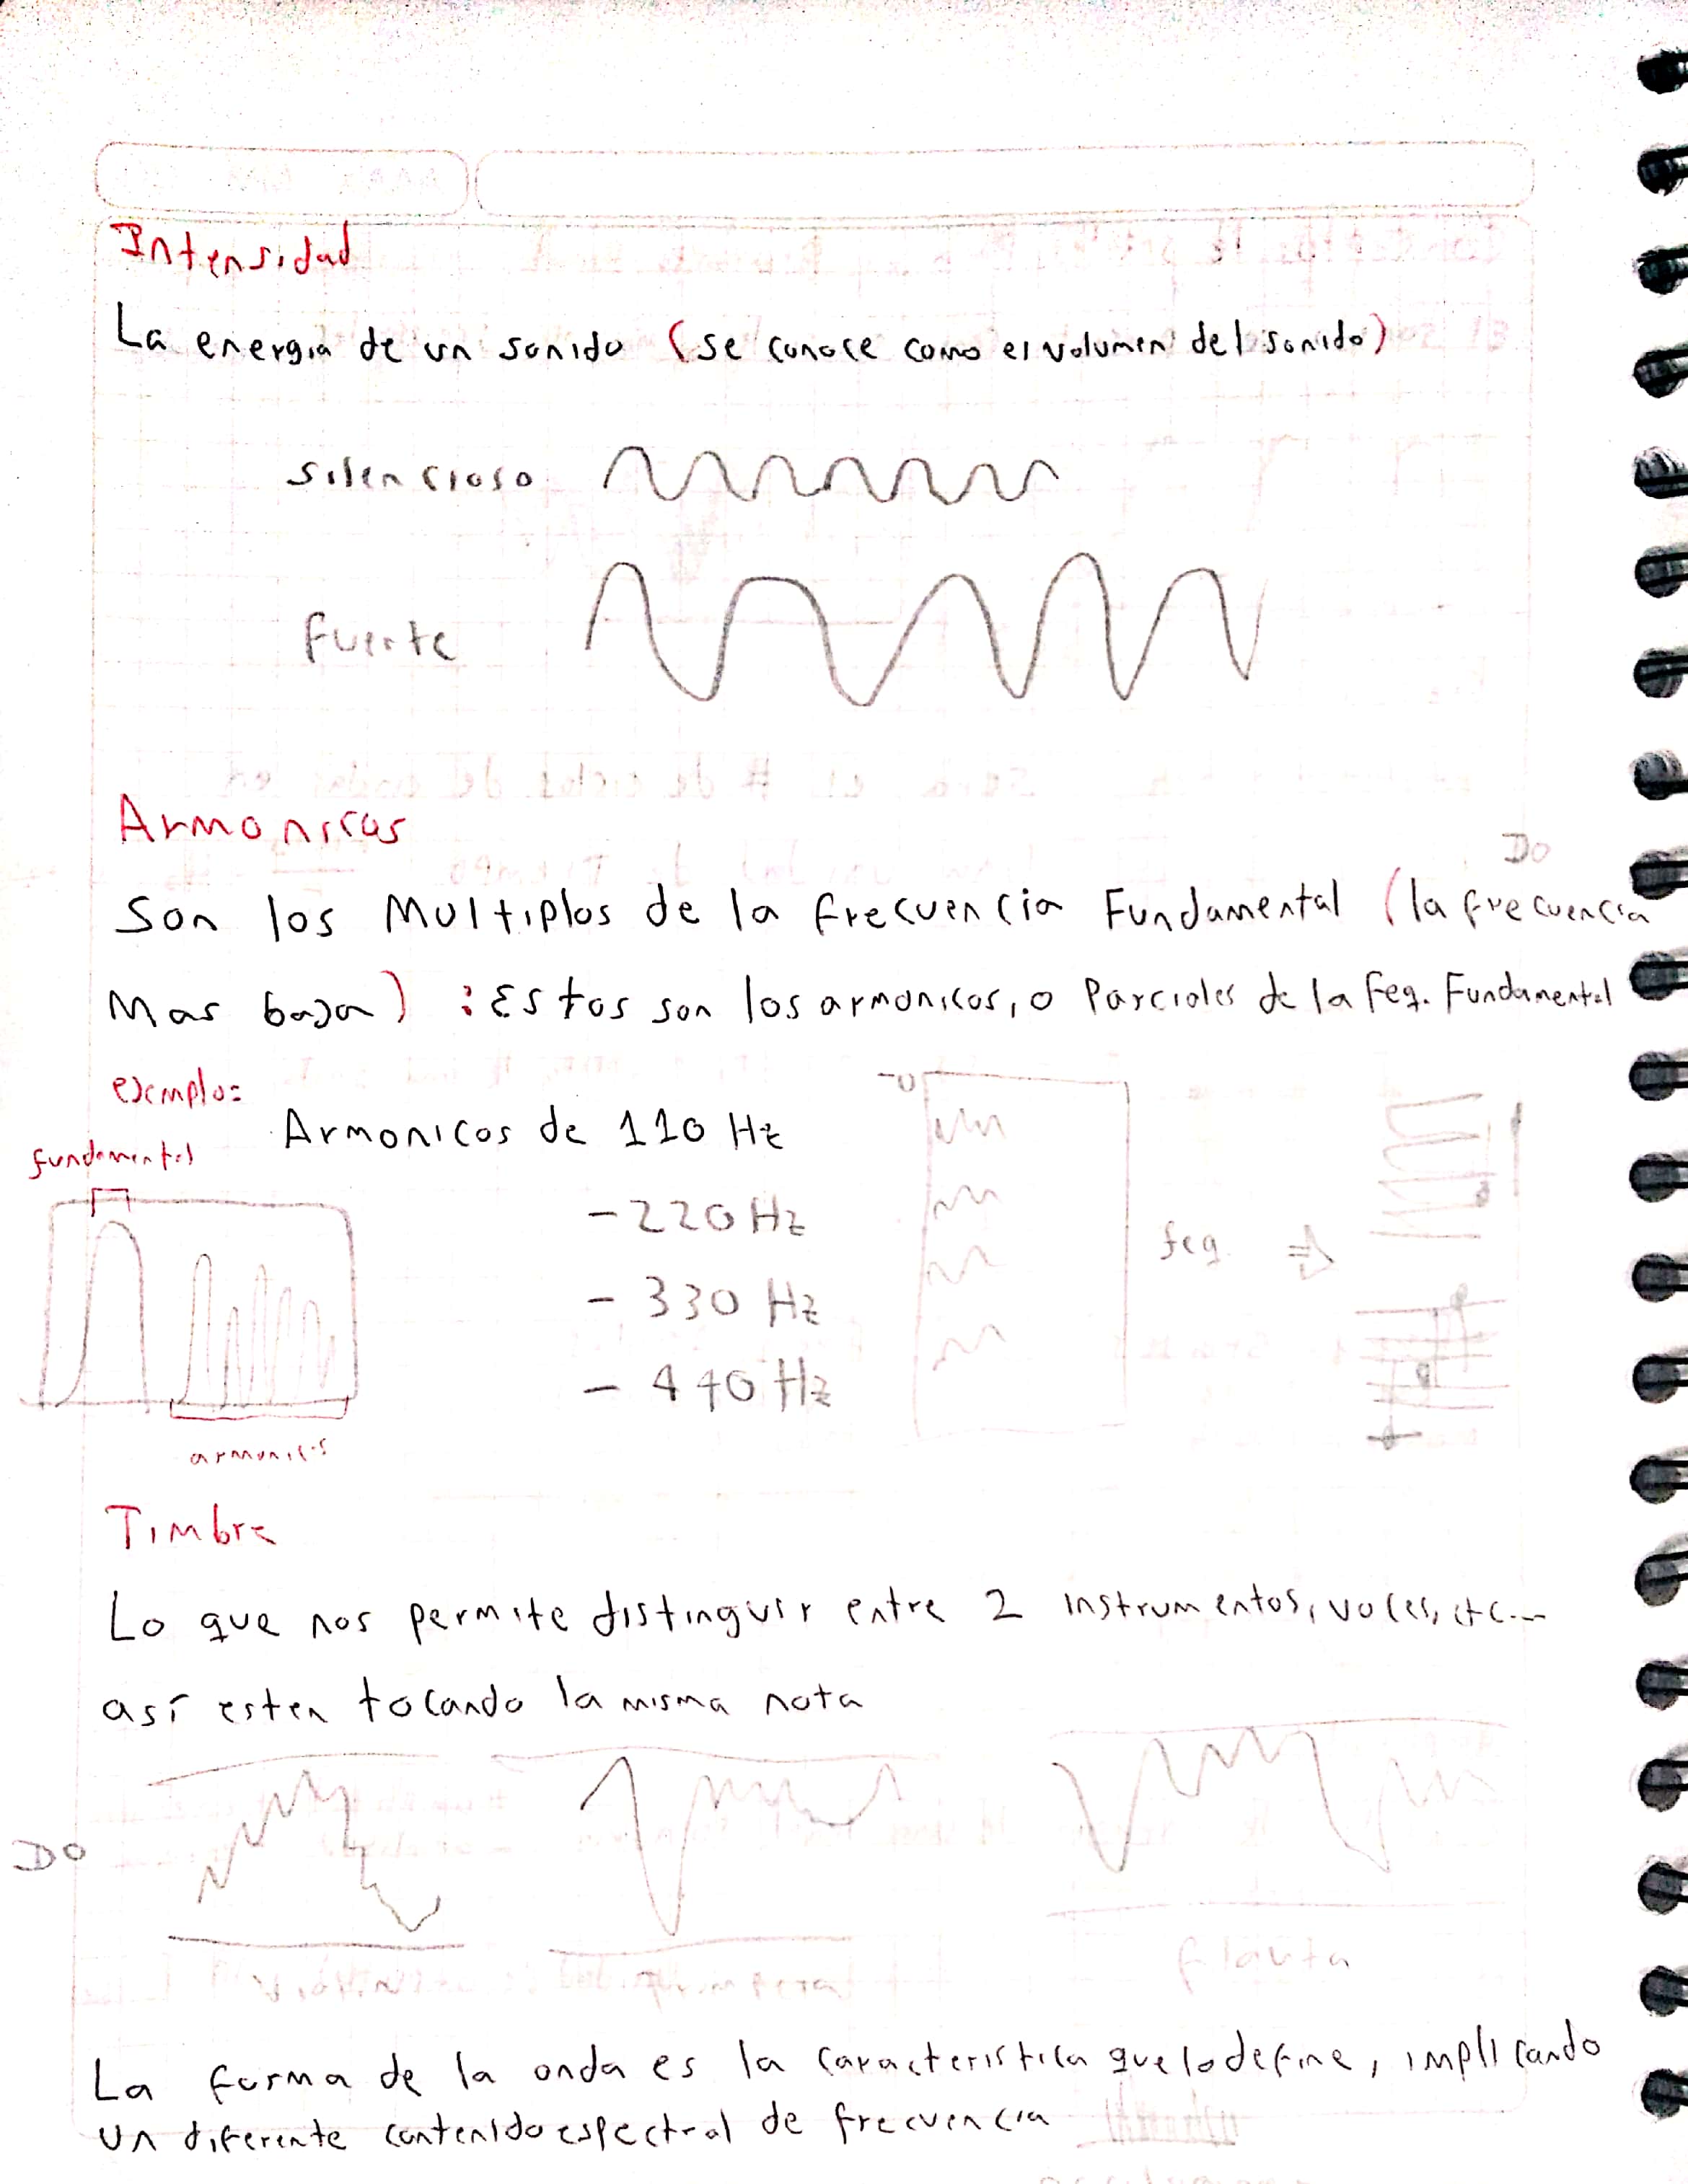 Intensidad
La energia de un sonido (se conoce como el volumen del sonido)
silencioso
fuerte
Armonicos
DO
Son los Multiplos de la frecuencia Fundamental (la frecuencia
Mas baja) : Estos son los armonicos, o Parciales de la feq. Fundamental
ejemplo:
Armonicos de 110 Hz
fundamental
- 220 Hz
feq. =>
- 330 Hz
- 440 Hz
armonicos
Timbre
Lo que nos permite distinguir entre 2 instrumentos, voces, etc...
así esten tocando la misma nota
DO
flauta
La forma de la onda es la caracteristica que lo define, implicando
un diferente contenido espectral de frecuencia